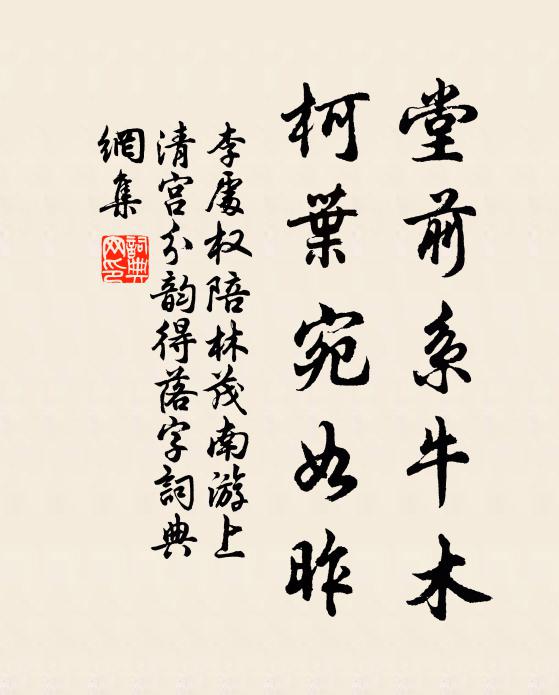 堂前系牛木
柯葉宛如昨
李處权陪林茂南游上
清宫分韵得落字詞典
網集
詞典网印